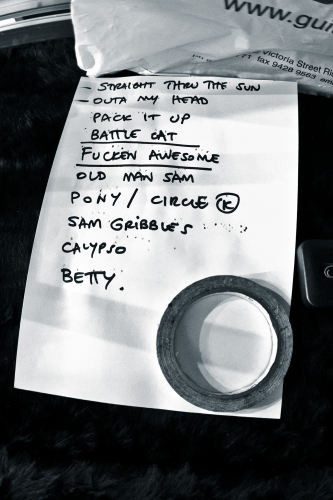 www.gu
Victoria Street Ri
fax 9428 9563
- STRAIGHT THRU THE SUN
- OUTA MY HEAD
PACK IT UP
BATTLE CAT
FUCKEN AWESOME
OLD MAN SAM
PONY / CIRCLE K
SAM GRIBBLES
CALYPSO
BETTY.